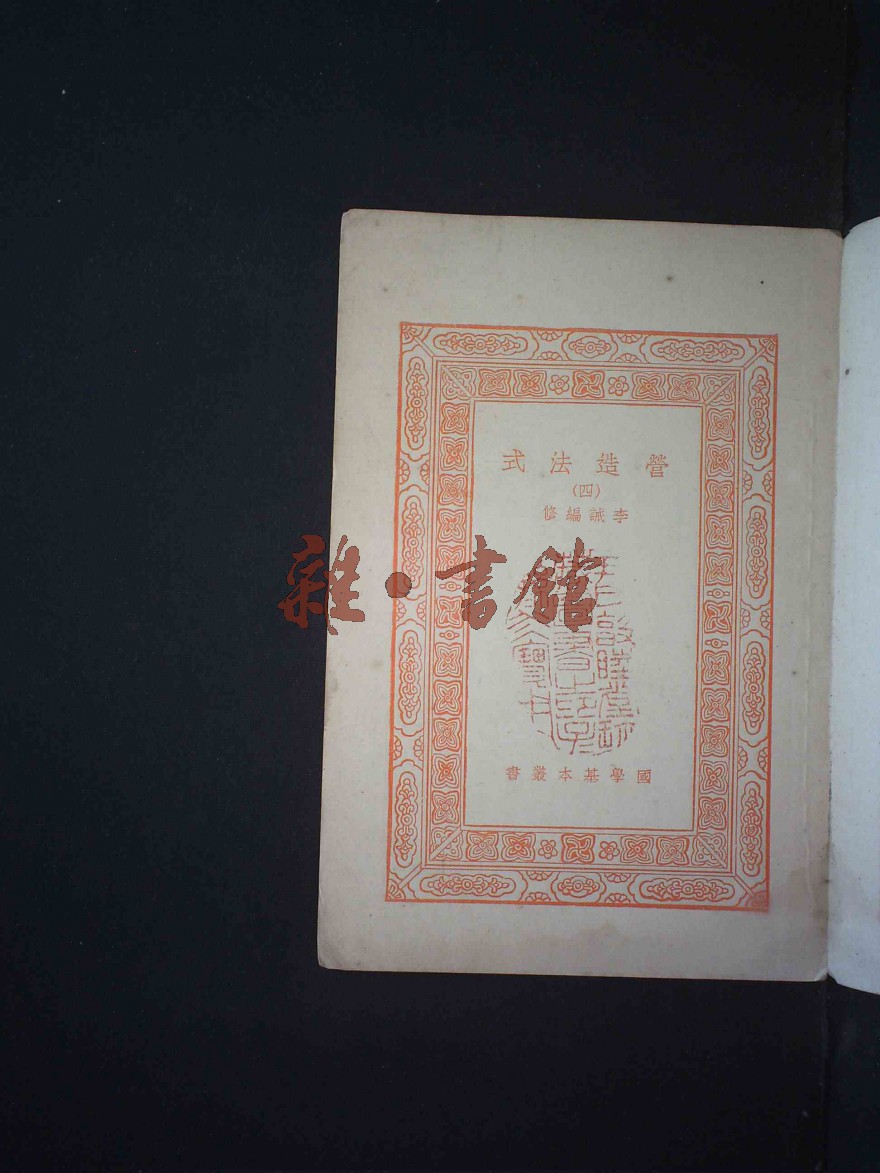 營造法式
(四)
李誡編修
雜·書館
國學基本叢書